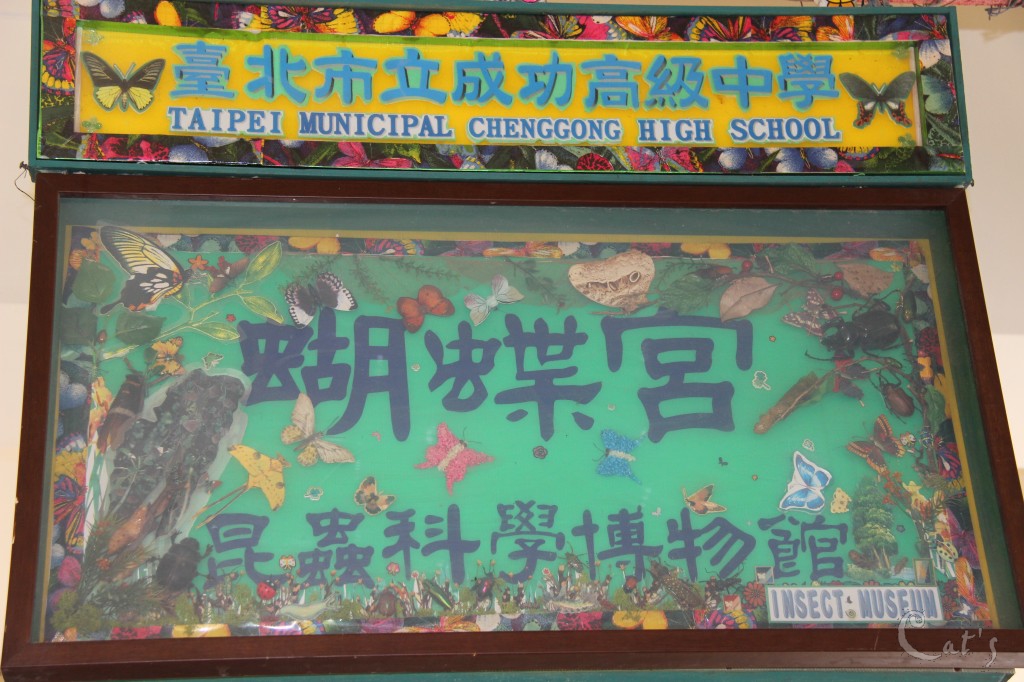 臺北市立成功高級中學
TAIPEI MUNICIPAL CHENGGONG HIGH SCHOOL
蝴蝶宮
昆蟲科學博物館
INSECT MUSEUM
Cat's